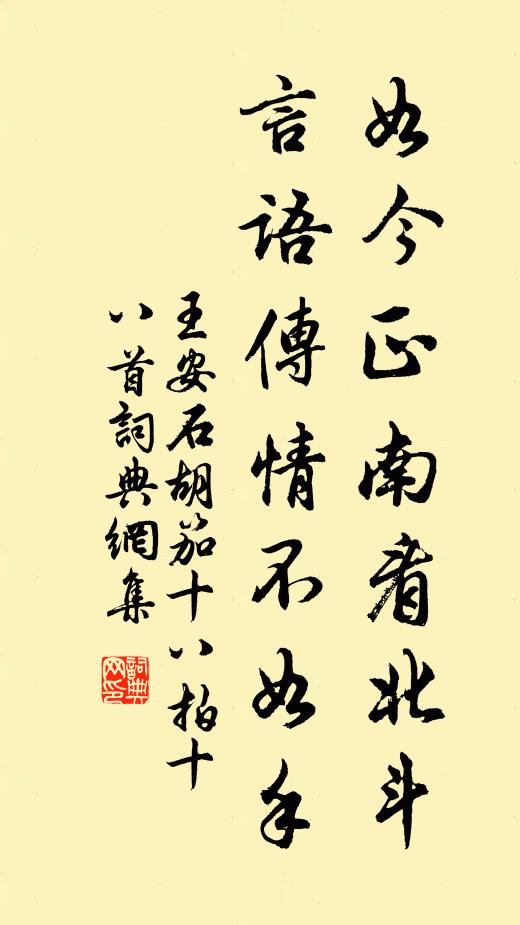 如今正南看北斗
言語傳情不如手
王安石胡笳十八拍十
八首詞典網集
詞典
网印